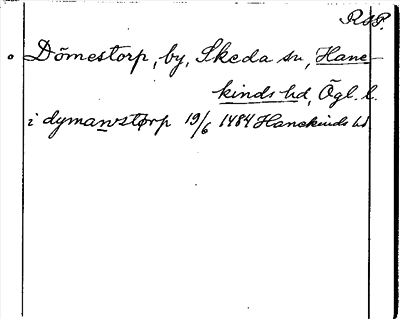 RAP.
Dömestorp, by, Skeda sn, Hane-
kinds hd, Ögl. l.
i dymanstørp 19/6 1484 Hanekinds hd